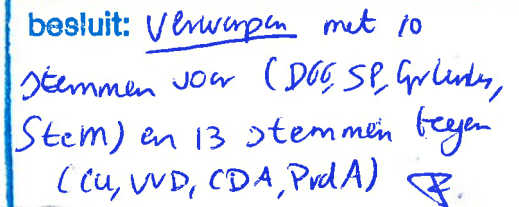 besluit: Verworpen met 10
stemmen voor (D66, SP, GrLinks,
Stem) en 13 stemmen tegen
(CU, VVD, CDA, PvdA)